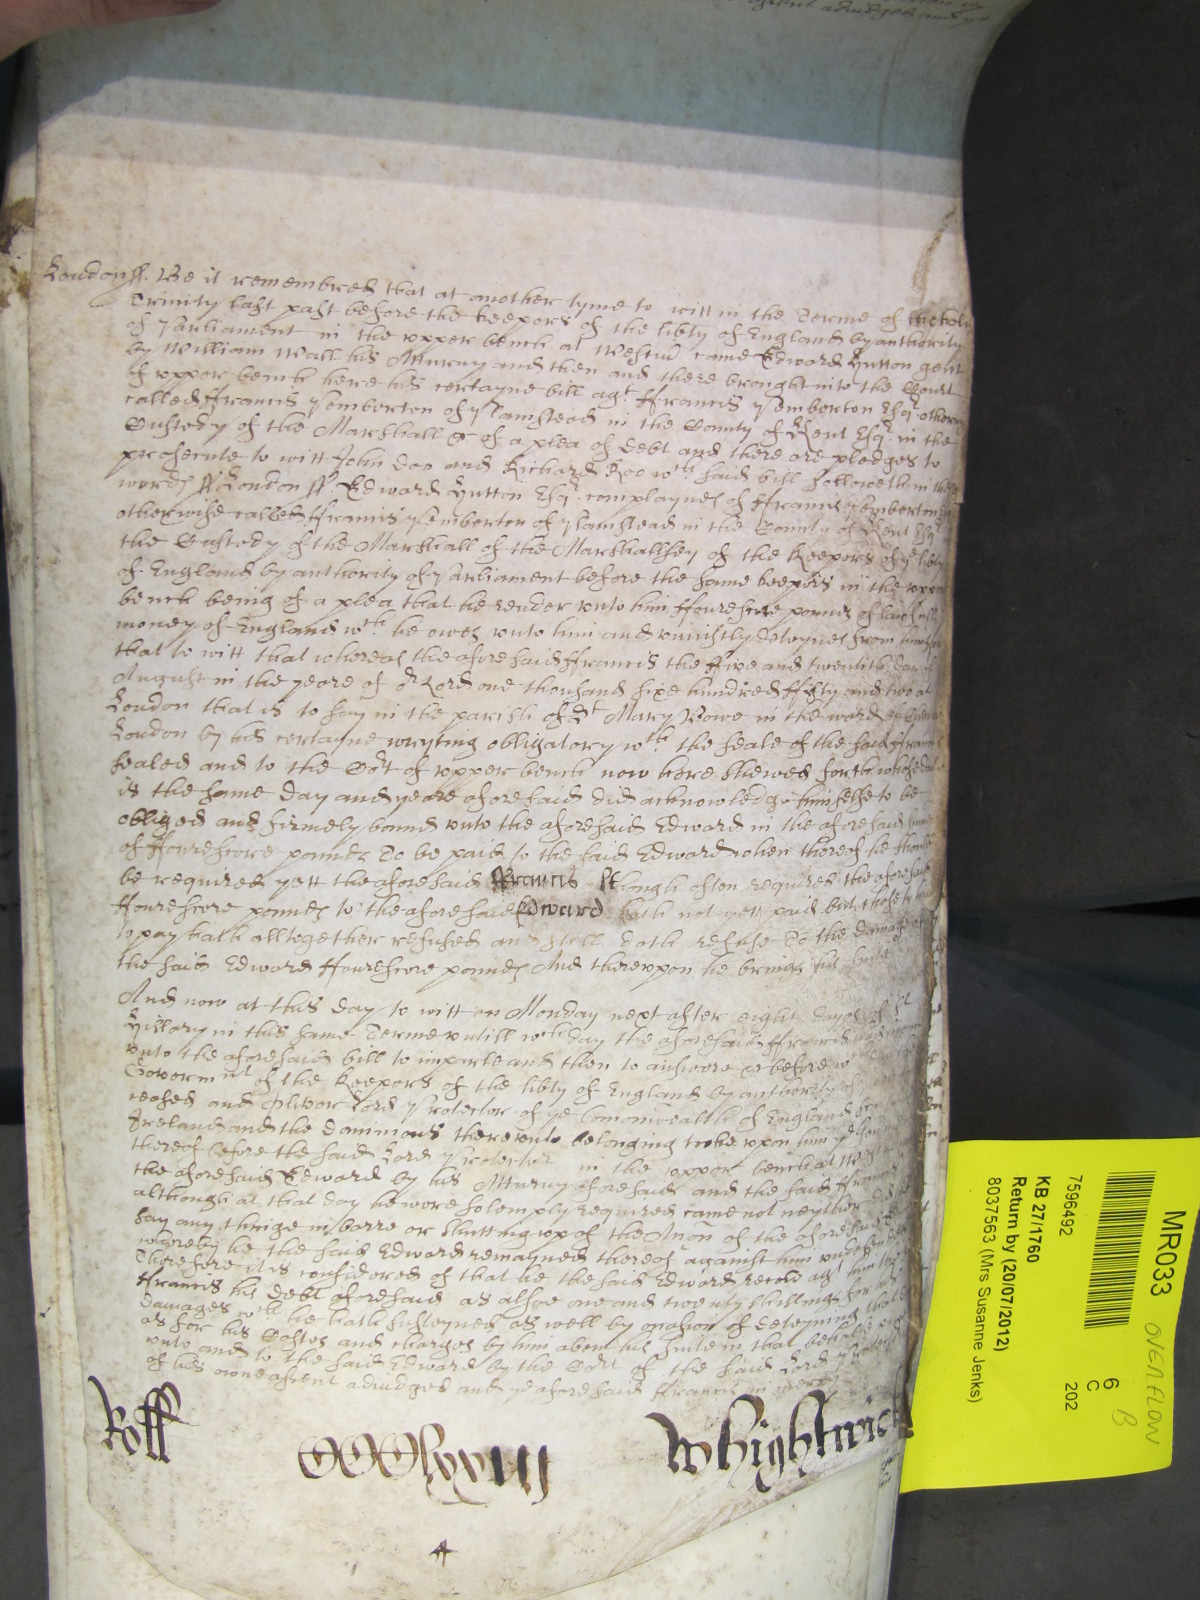 London ss. Be it remembred that at another tyme to witt in the Terme of the holy
Trinity last past before the keepers of the libty of England by authority
of Parliament in the upper bench at Westm came Edward Hutton gent
by William Wall his Atturny and then and there brought into the Court
of upper bench here his certayne bill agt ffrancis Pemberton Esqr otherwise
called ffrancis Pemberton of Plamstead in the County of Kent Esqr in the
Custody of the Marshall &c of a plea of debt and there are pledges to
prosecute to witt John Doo and Richard Roo wch said bill followeth in these
words ss London ss Edward Hutton Esqr complaynes of ffrancis Pemberton
otherwise called ffrancis Pemberton of Plamstead in the County of Kent Esqr
the Custody of the Marshall of the Marshallsey of the keepers of ye libty
of England by authority of Parliament before the same keepers in the upper
bench being of a plea that he render unto him ffourescore pounds of lawfull
money of England wch he owes unto him and uniustly deteynes from him for
that to witt that whereas the aforesaid ffrancis the ffive and twentith day of
August in the yeare of or Lord one thousand sixe hundred ffifty and two at
London that is to say in the parish of St Mary Bowe in the ward of Cheape
London by his certayne wryting obligatory wth the seale of the said ffrancis
sealed and to the Cort of upper bench now here shewed forth whose date
is the same day and yeare aforesaid did acknowledge himselfe to be
obliged and firmely bound unto the aforesaid Edward in the aforesaid
of ffourescore pounds To be paid to the said Edward when thereof he should
be required yett the aforesaid ffrancis though often required the aforesaid
ffourescore pounds to the aforesaid Edward hath not yett paid but those to him
to pay hath alltogether refused and still doth refuse To the damage of
the said Edward ffourescore pounds And thereupon he brings his suite
And now at this day to witt on Monday next after eight dayes of St
Hillary in this same Terme untill wch day the aforesaid ffrancis had
unto the aforesaid bill to imparle and then to answere &c before wch
Goverment of the keepers of the libty of England by authority of
ceased and Oliver Lord Protector of ye Comonwealth of England
Ireland and the dominions thereunto belonging tooke upon him ye
thereof before the said Lord Protector in the upper bench at
the aforesaid Edward by his Atturny aforesaid and the said ffrancis
although at that day he were solemply required came not neyther did he
say any thinge in barre or shutting up of the Accon of the aforesaid
whereby he the said Edward remayned thereof against him undefended
Therefore it is considered of that he the said Edward recover agt him the
ffrancis his debt aforesaid as alsoe one and twenty shillings for his
damages wch he hath susteyned as well by occasion of deteyning that debt
as for his Costes and charges by him about his suite in that behalfe
unto and to the said Edward by the Cort of the said Lord Protector
of his owne assent adiudged and ye aforesaid ffrancis in mercy
Roff CCClxxiii Whightwick
MR033 OVERFLOW
6 B
C
202
7596492
KB 27/1760
Return by (20/07/2012)
8037563 (Mrs Susanne Jenks)